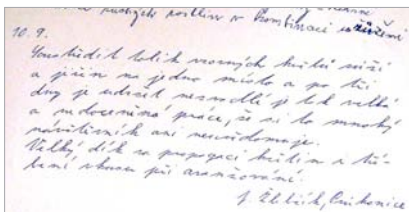 suchých rostlin v kombinaci
10. 9.
Soustředit tolik vzácných kvítků růží
a jiřin na jedno místo a po tři
dny je udržet nezvadlé je tak velká
a nedoceněná práce, že si to mnohý
návštěvník ani neuvědomuje.
Velký dík za propagaci květin a tří-
bení vkusu při aranžování.
J. Žlebčík, Průhonice